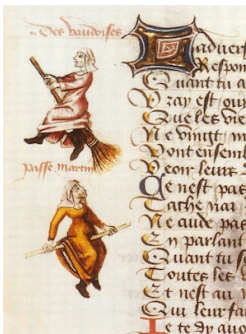 Des vaudoises
passe martin
Ladvert
Respon
Quant tu a
Vray est oui
Que les vie
Ne vingt n
Vont ensembl
Veoir leurs
Ce nest pas
Tache nai
Ne aude pas
En parlant
Quant tu s
Toutes les
Et nest au
Qui leur fai
Je te dy